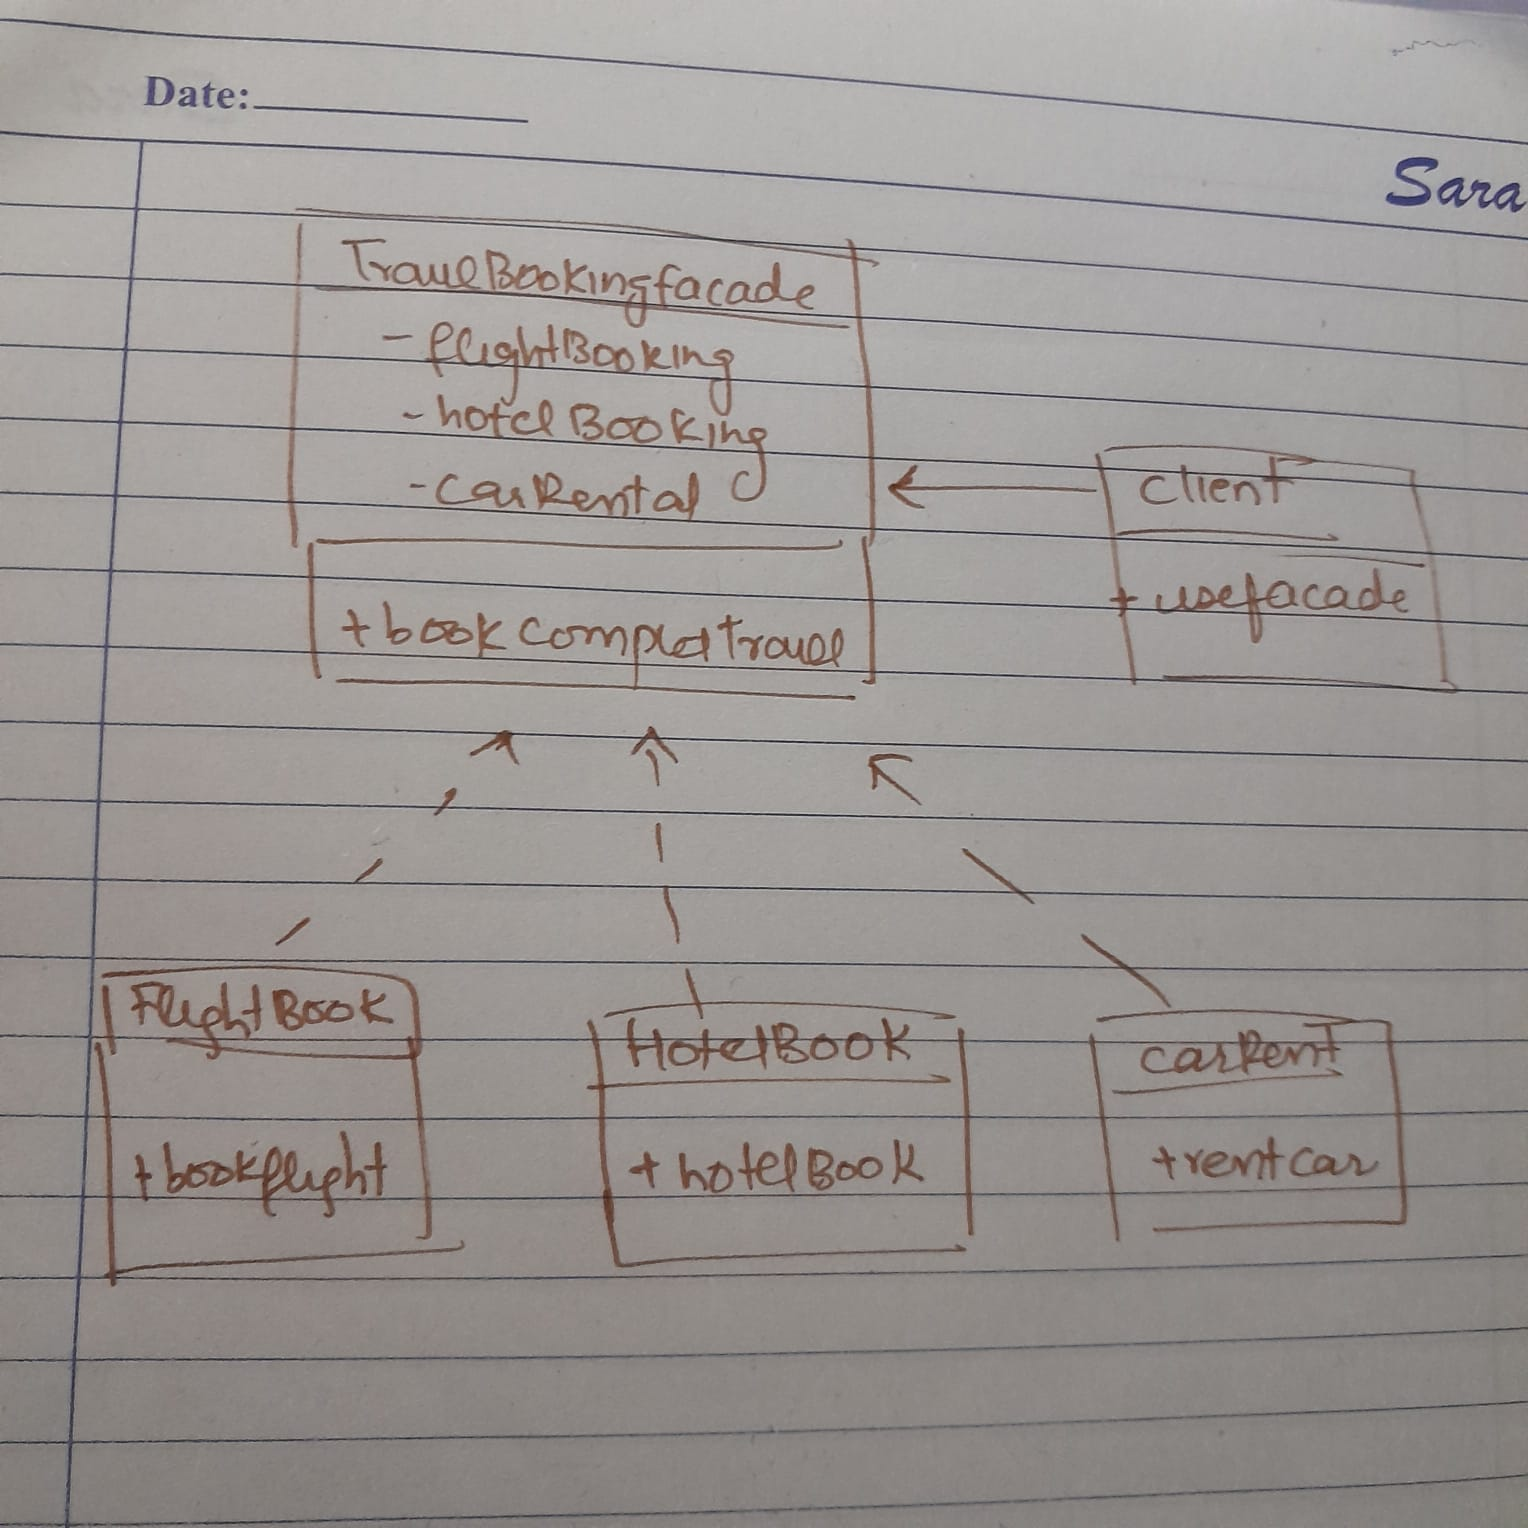 Date:
Sara
TravelBookingfacade
- flightBooking
- hotelBooking
- carRental
+ bookcompletTravel
client
+ usefacade
FlightBook
+ bookflight
HotelBook
+ hotelBook
carRent
+ rentcar